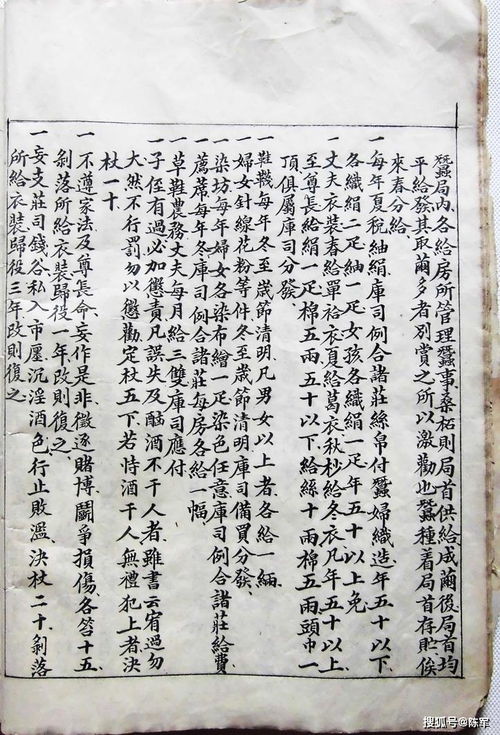 蠶局内各給房所管理蠶事桑柘則局首供給成蠒後局首均
平給發其取繭多者別賞之所以激勸也蠶種着局首存貯俟
來春分給
一每年夏稅紬絹庫司例合諸莊絲帛付蠶婦織造年五十以下
各織絹二疋紬一疋女孩各織絹一疋年五十以上免
一丈夫衣裝春給單袷衣夏給葛衣秋杪給冬衣凡年五十以上
至尊長給絹一疋棉五兩五十以下給絲十兩棉五兩頭巾一
頂俱屬庫司分發
一鞋韈每年冬至歲節清明凡男女以上者各給一緉
一婦女針線花粉等件冬至歲節清明庫司備買分發
一染坊每年婦女各染布繒一疋染色任意庫司例合諸莊給費
一薦蓆每年冬庫司例合諸莊每房各給一幅
一草鞋農務丈夫每月給三雙庫司應付
一子侄有過必加懲責凡誤失及酗酒不干人者雖書云宥過勿
大然不行罰勿以懲勸定杖五下若恃酒干人無禮犯上者決
杖一十
一不遵家法及尊長命妄作是非徵逐賭博鬬爭損傷各笞十五
剝落所給衣裝歸役一年改則復之
一妄支莊司錢谷私入市廛沉淫酒色行止敗濫決杖二十剝落
所給衣裝歸役三年改則復之
搜狐号@陈军